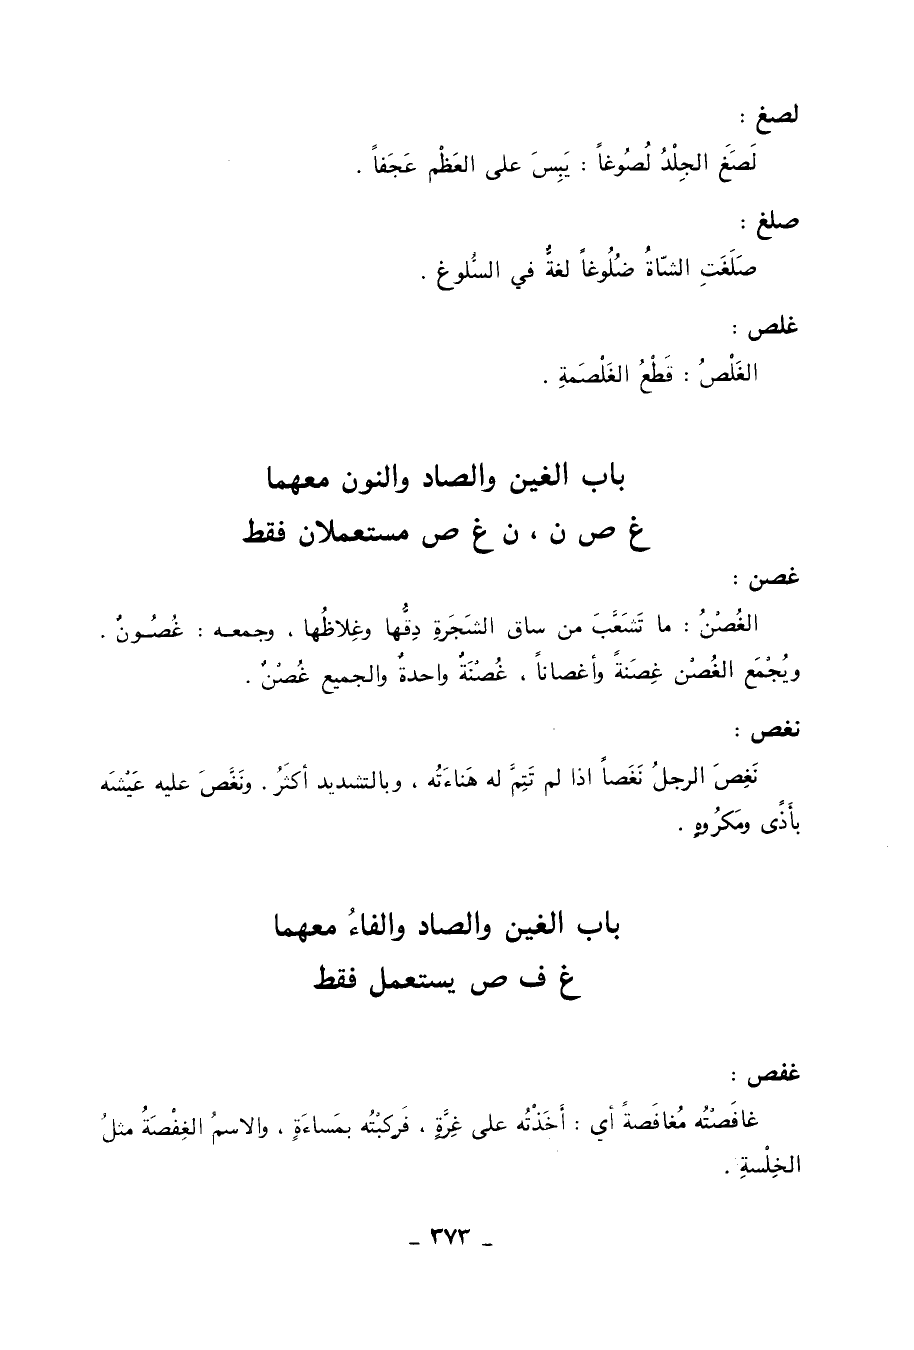 لصغ :
لَصَغَ الجِلْدُ لُصُوغاً : يَبِسَ على العَظْم عَجَفاً .
صلغ :
صَلَغَتِ الشّاةُ ضُلُوغاً لغةٌ في السُّلوغ .
غلص :
الغَلْصُ : قَطْعُ الغَلْصَمةِ .
باب الغين والصاد والنون معهما
غ ص ن ، ن غ ص مستعملان فقط
غصن :
الغُصْنُ : ما تَشَعَّبَ من ساق الشَجَرةِ دِقُّها وغِلاظُها ، وجمعه : غُصُونٌ .
ويُجْمَع الغُصْن غِصَنةً وأغصاناً ، غُصْنَةٌ واحدةٌ والجميع غُصْنٌ .
نغص :
نَغِصَ الرجلُ نَغَصاً اذا لم تَتِمَّ له هَناءَتُه ، وبالتشديد أكثَرُ . ونَغَّصَ عليه عَيْشَه
بأَذًى ومَكرُوهٍ .
باب الغين والصاد والفاءُ معهما
غ ف ص يستعمل فقط
غفص :
غافَصْتُه مُغافَصةً أي : أَخَذْتُه على غِرَّةٍ ، فَركِبْتُه بمَساءَةٍ ، والاسمُ الغِفْصَةُ مثلُ
الخِلْسةِ .
ـ ٣٧٣ ـ